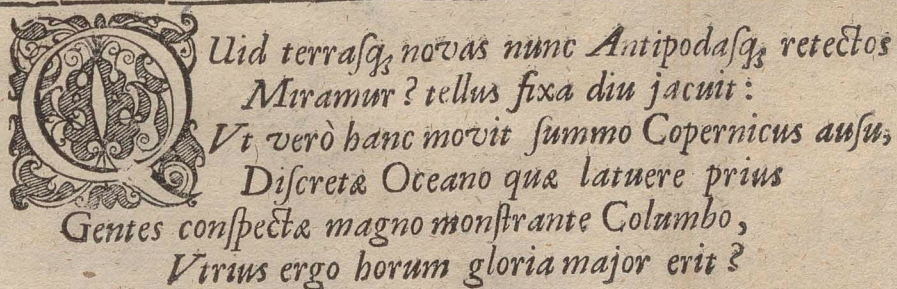 QUid terraſq; novas nunc Antipodaſq; retectos
Miramur? tellus fixa diu jacuit:
Vt verò hanc movit ſummo Copernicus auſu,
Diſcretæ Oceano quæ latuere prius
Gentes conſpectæ magno monſtrante Columbo,
Vtrius ergo horum gloria major erit?